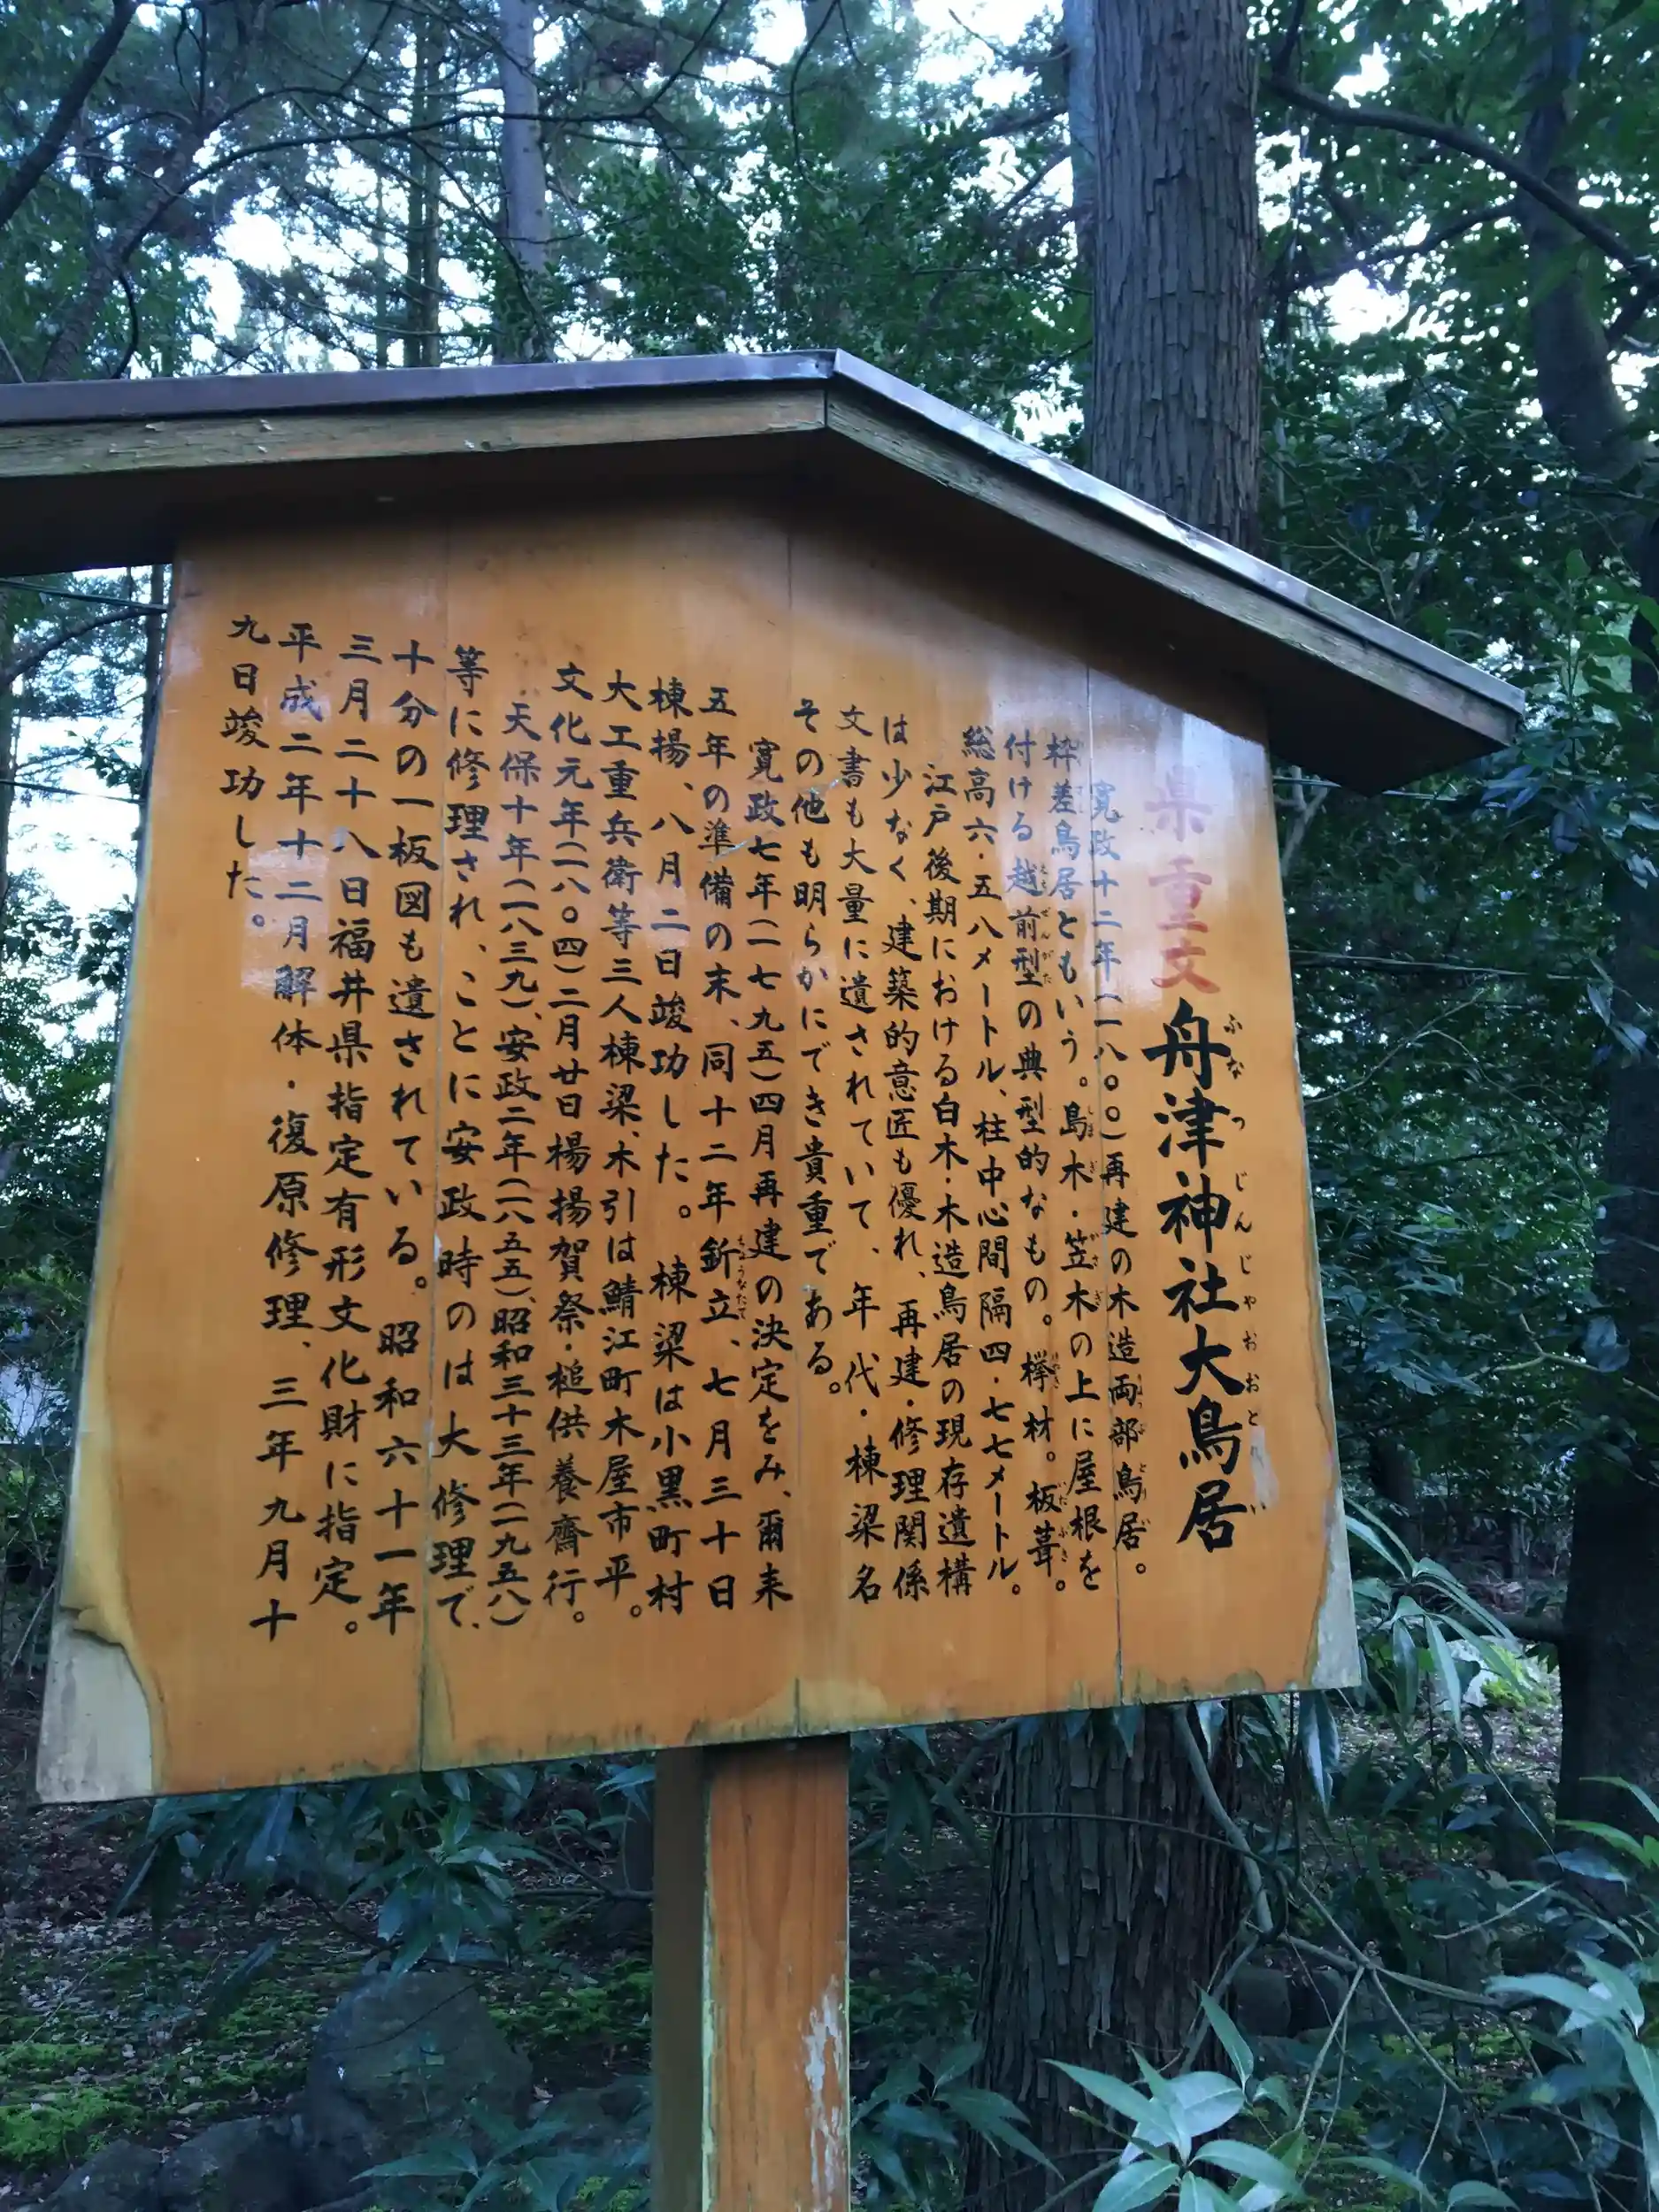 県重文 舟津神社大鳥居
ふなつじんじゃおおとりい
寛政十二年(一八〇〇)再建の木造両部鳥居。
枠差鳥居ともいう。島木・笠木の上に屋根を
付ける越前型の典型的なもの。欅材。板葺。
総高六・五八メートル、柱中心間隔四・七七メートル。
江戸後期における白木・木造鳥居の現存遺構
は少なく、建築的意匠も優れ、再建・修理関係
文書も大量に遺されていて、年代・棟梁名
その他も明らかにでき貴重である。
寛政七年(一七九五)四月再建の決定をみ、爾来
五年の準備の末、同十二年釿立、七月三十日
棟揚、八月二日竣功した。棟梁は小黒町村
大工重兵衛等三人棟梁、木引は鯖江町木屋市平。
文化元年(一八〇四)二月廿日楊揚賀祭・槌供養齊行。
天保十年(一八三九)、安政二年(一八五五)、昭和三十三年(一九五八)
等に修理され、ことに安政時のは大修理で、
十分の一板図も遺されている。昭和六十一年
三月二十八日福井県指定有形文化財に指定。
平成二年十二月解体・復原修理、三年九月十
九日竣功した。